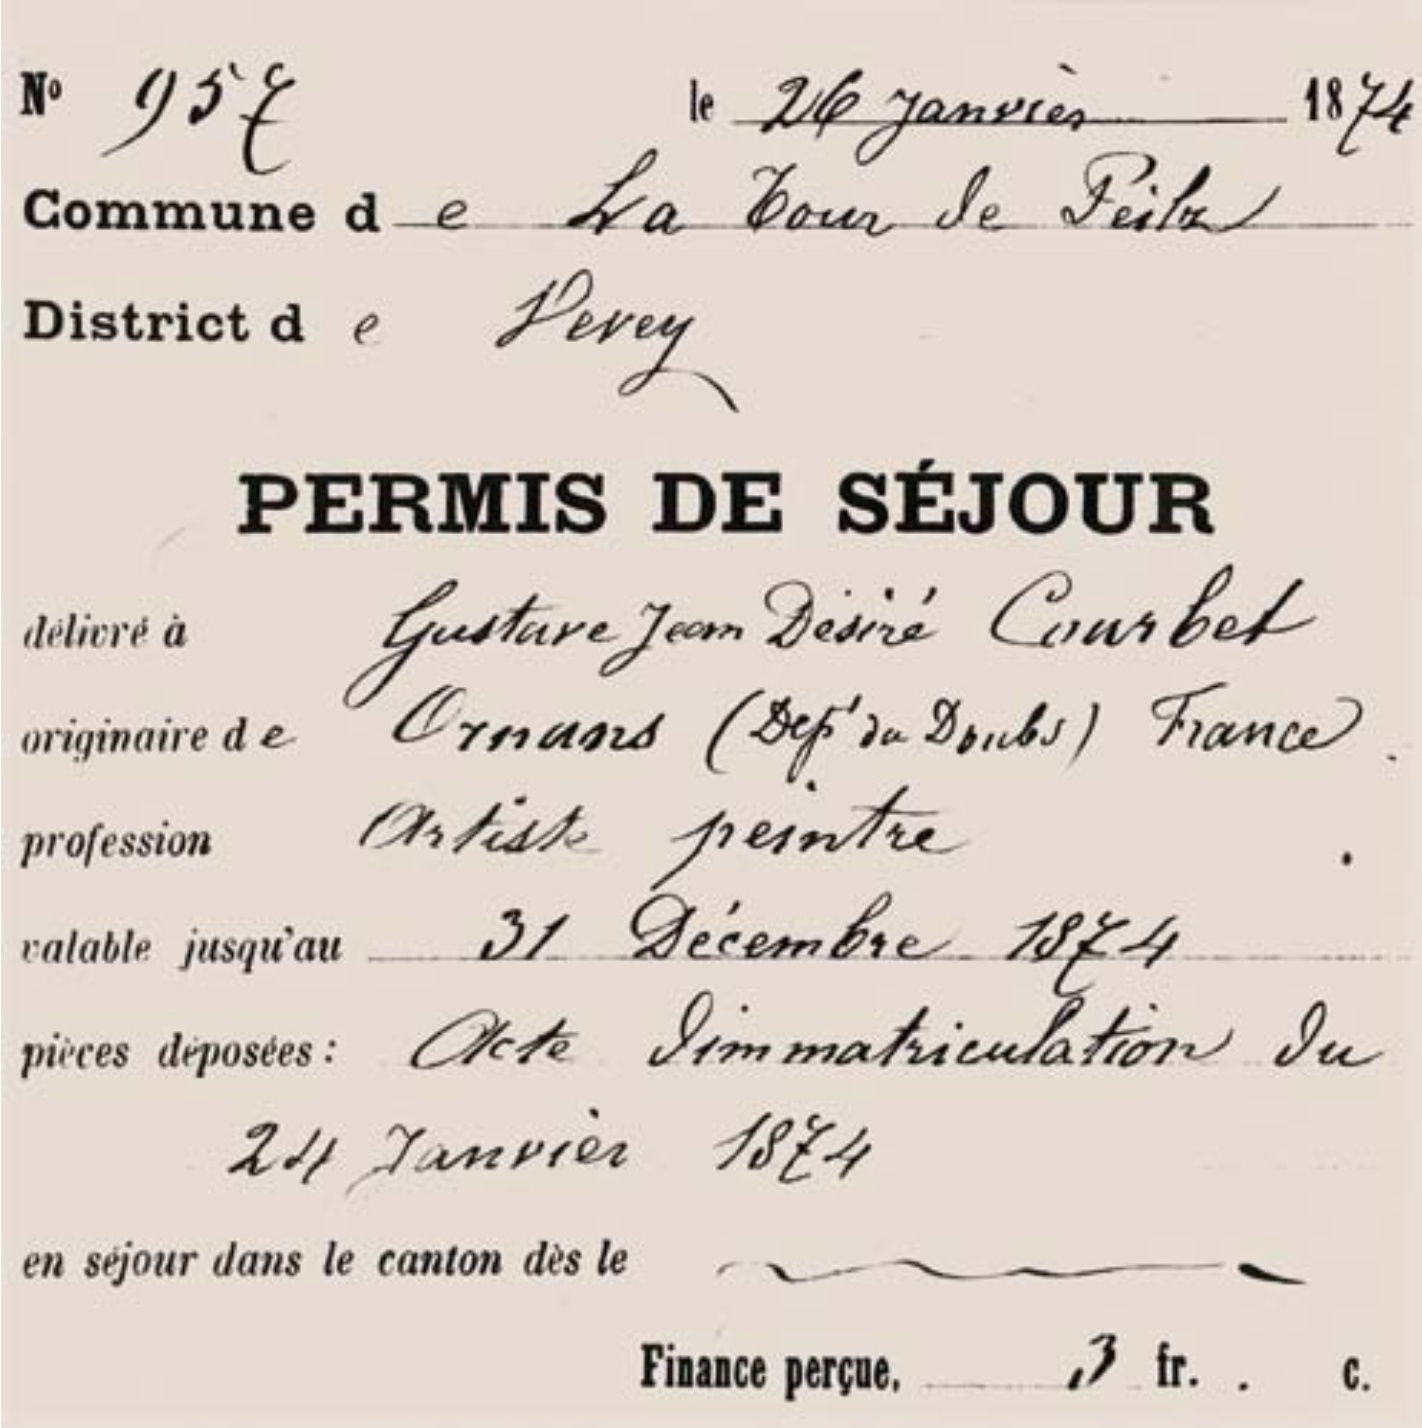 No 957 le 26 Janvier 1874
Commune de La Tour de Peilz
District de Vevey
PERMIS DE SÉJOUR
délivré à Gustave Jean Désiré Courbet
originaire de Ornans (Dept du Doubs) France.
profession Artiste peintre.
valable jusqu'au 31 Décembre 1874
pièces déposées: Acte d'immatriculation du
24 Janvier 1874
en séjour dans le canton dès le
Finance perçue, 3 fr. . c.